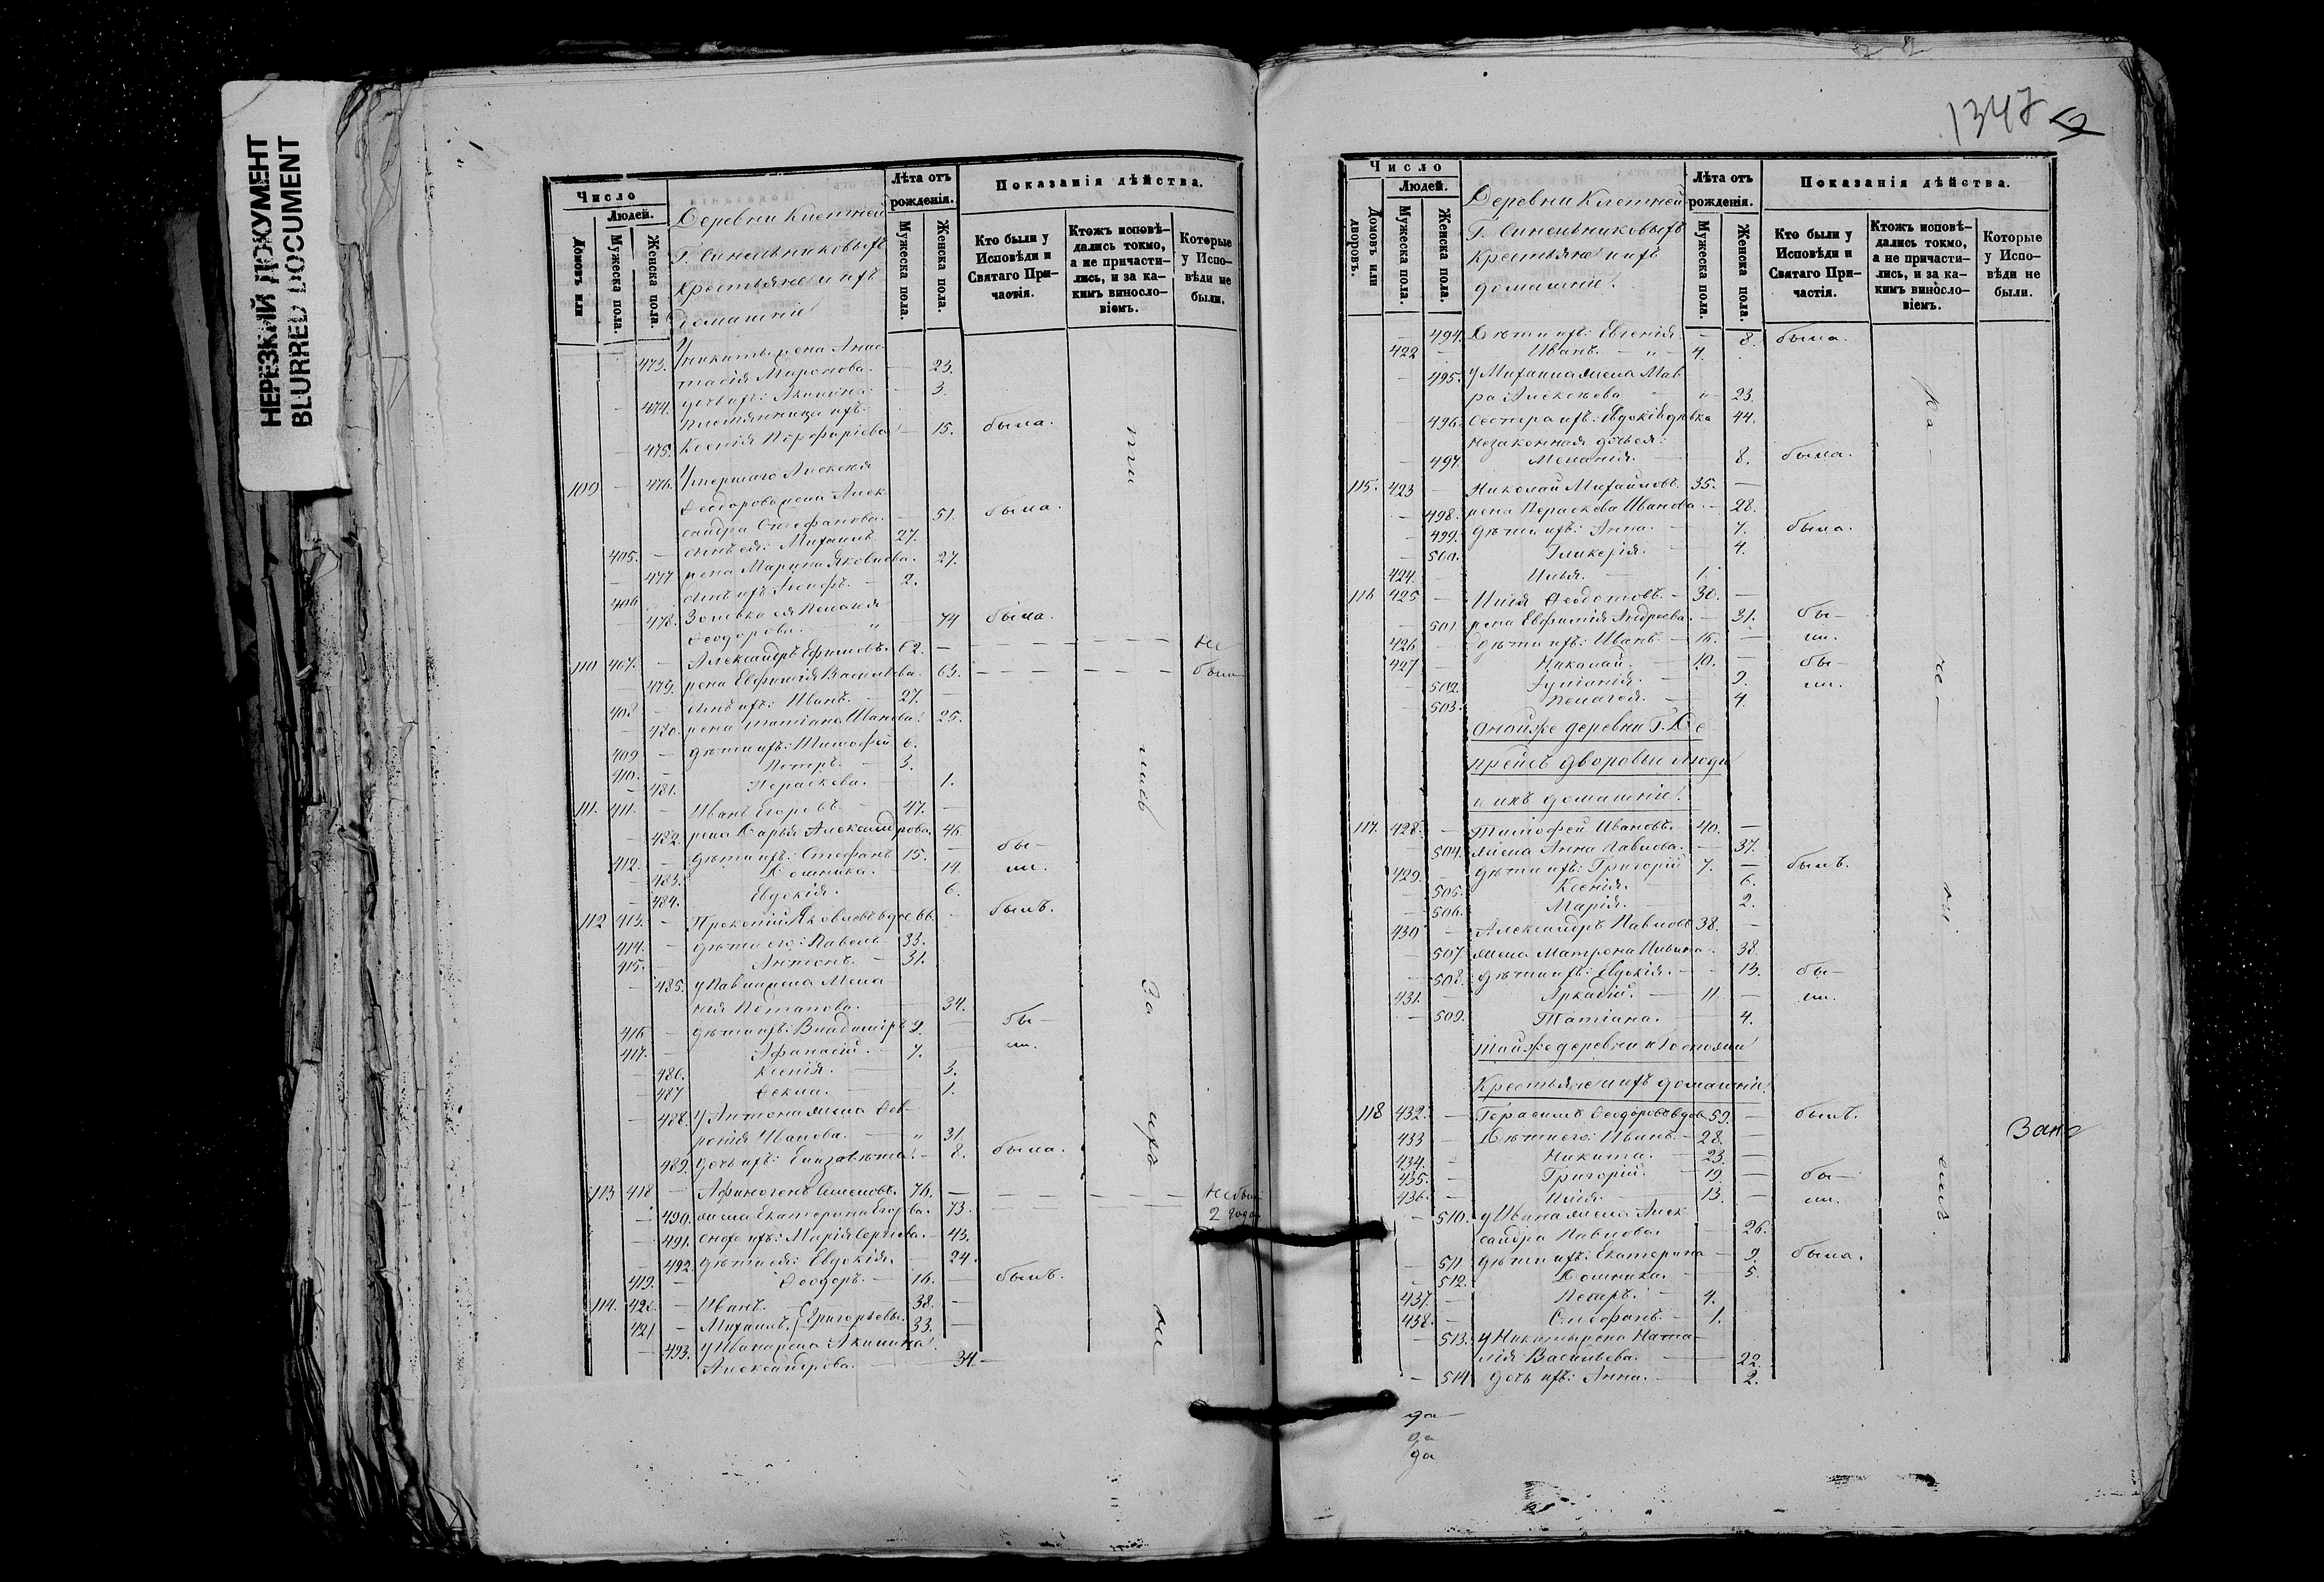 НЕРЕЗКИЙ ДОКУМЕНТ
BLURRED DOCUMENT
Число
Людей.
Домовъ или
Мужеска пола.
Женска пола.
Деревни Клетней
Г. Синельниковыхъ
Крестьяне и ихъ
домашніе
Лѣта отъ рожденія.
Мужеска пола.
Женска пола.
Показанія дѣйства.
Кто были у Исповѣди и Святаго Причастія.
Ктожъ исповѣдались токмо, а не причастились, и за какимъ винословіемъ.
Которые у Исповѣди не были.
473. У Никиты жена Анас-
тасія Миронова. — 23.
474. дочь ихъ: Акилина. 3.
племянница ихъ:
475. Ксенія Порфиріева — 15. была.
109 — 476. Умершаго Алексѣя
Ѳеодорова жена Алек-
сандра Стефанова. — 51. была.
405. — сынъ ея: Михаилъ 27.
— 477 жена Марина Яковлева. 27.
406 сынъ ихъ Іосифъ. — 2.
— 478. Золовка ея Пелагія
Ѳеодорова. 74 была.
110 407. — Александръ Ефимовъ. 62. — не
— 479. жена Евфимія Васильева. 63. — были
408 — сынъ ихъ: Иванъ. — 27. —
— 480. жена Татіана Иванова. 25.
409 — дѣти ихъ: Тимофей 6.
410. — Петръ. — 3.
— 481. Параскева. — 1.
111. 411. — Иванъ Егоровъ. — 47. —
— 482. жена Дарья Александрова. 46.
412. — дѣти ихъ: Стефанъ 15. — бы-
— 483. Домника. — 14 ли.
— 484. Евдокія. 6.
112 413. — Прокопій Яковлевъ вдов 66. — былъ.
414. — дѣти его: Павелъ 33.
415. — Антонъ. — 31.
— 485. у Павла жена Мела
нія Потапова. — 34.
416 — дѣти ихъ: Владиміръ 9. — бы-
417. — Афанасій. — 7. — ли.
— 486. Ксенія. — 3.
— 487 Ѳекла. — 1.
— 488. у Антона жена Фев-
ронія Иванова. — " 31.
489. дочь ихъ: Елизавета. — 8. была.
113 418 — Афиногенъ Семеновъ. 76. — не были
— 490. жена Екатерина Егорова. 73. — 2 года
— 491. сноха ихъ: Марія Сергіева. 43.
— 492. дѣти ея: Евдокія. 24.
419. — Ѳеодоръ. — 16. — былъ.
114. 420. — Иванъ. — 38. —
421 — Михаилъ. Григорьевы. 33. —
— 493. у Ивана жена Акилина
Александрова. — 34. —
При
лись
За
ихъ
1347
Число
Людей.
Домовъ или дворовъ.
Мужеска пола.
Женска пола.
Деревни Клетней
Г. Синельниковыхъ
Крестьяне и ихъ
домашніе.
Лѣта отъ рожденія.
Мужеска пола.
Женска пола.
Показанія дѣйства.
Кто были у Исповѣди и Святаго Причастія.
Ктожъ исповѣдались токмо, а не причастились, и за какимъ винословіемъ.
Которые у Исповѣди не были.
— 494. Дѣти ихъ: Евгенія. — 8. была.
422 — Иванъ. — " — 4.
— 495. у Михаила жена Мав
ра Алексѣева " 23.
— 496. сестра ихъ: Евдокія дѣвка 44.
незаконная дочь ея:
— 497. Меланія. — 8. была.
115. 423 — Николай Михайловъ. 35. —
— 498. жена Параскева Иванова. — 28.
— 499. дѣти ихъ: Анна. — 7. была.
— 500. Гликерія. — 4.
424. — Илья. — 1.
116 425 — Илія Ѳеодотовъ. — 30. —
— 501 жена Евфимія Андреева. — 31. бы-
426 — дѣти ихъ: Иванъ. — 16. — ли.
427 — Николай. — 10. — бы-
— 502. Іуліанія. — 9. ли.
— 503. Пелагея. — 4.
Оной же деревни Г. Де
прейсъ дворовые люди
и ихъ домашніе.
117. 428. — Тимофей Ивановъ. 40. —
— 504. жена Анна Павлова. — 37.
429. — дѣти ихъ: Григорій 7. — былъ.
— 505. Ксенія. 6.
— 506. Марія. 2.
430 — Александръ Павловъ 38. —
— 507 жена Матрона Ильина. 38.
— 508. дѣти ихъ: Евдокія. — 13. бы-
431. — Аркадій. — 11 — ли.
— 509. Татіана. — 4.
Той же деревни
Крестьяне и ихъ домашніе.
118 432. — Герасимъ Ѳеодоровъ вдов 59. — былъ.
433 — Дѣти его: Иванъ. — 28. —
434. — Никита. — 23. —
435. — Григорій. — 19 — бы-
436. — Илія. — 13. — ли.
— 510. у Ивана жена Алек
сандра Павлова. 26.
— 511 дѣти ихъ: Екатерина — 9. была.
— 512. Домника. — 5.
437. — Петръ. — 4.
438. — Стефанъ — 1.
— 513. у Никиты жена Ната-
лія Васильева. — 22.
— 514 дочь ихъ: Анна. — 2.
да
да
да